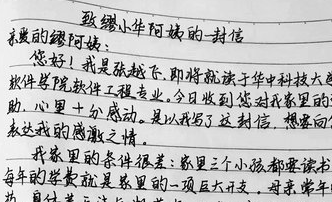 致缪小华阿姨的一封信
亲爱的缪阿姨：
您好！我是张越飞，即将就读于华中科技大
软件学院软件工程专业。今日收到您对我家里的
助，心里十分感动。是以我写了这封信，想要向
表达我的感激之情。
我家里的条件很差：家里三个小孩都要读书
每年的学费就是家里的一项巨大开支。母亲常年